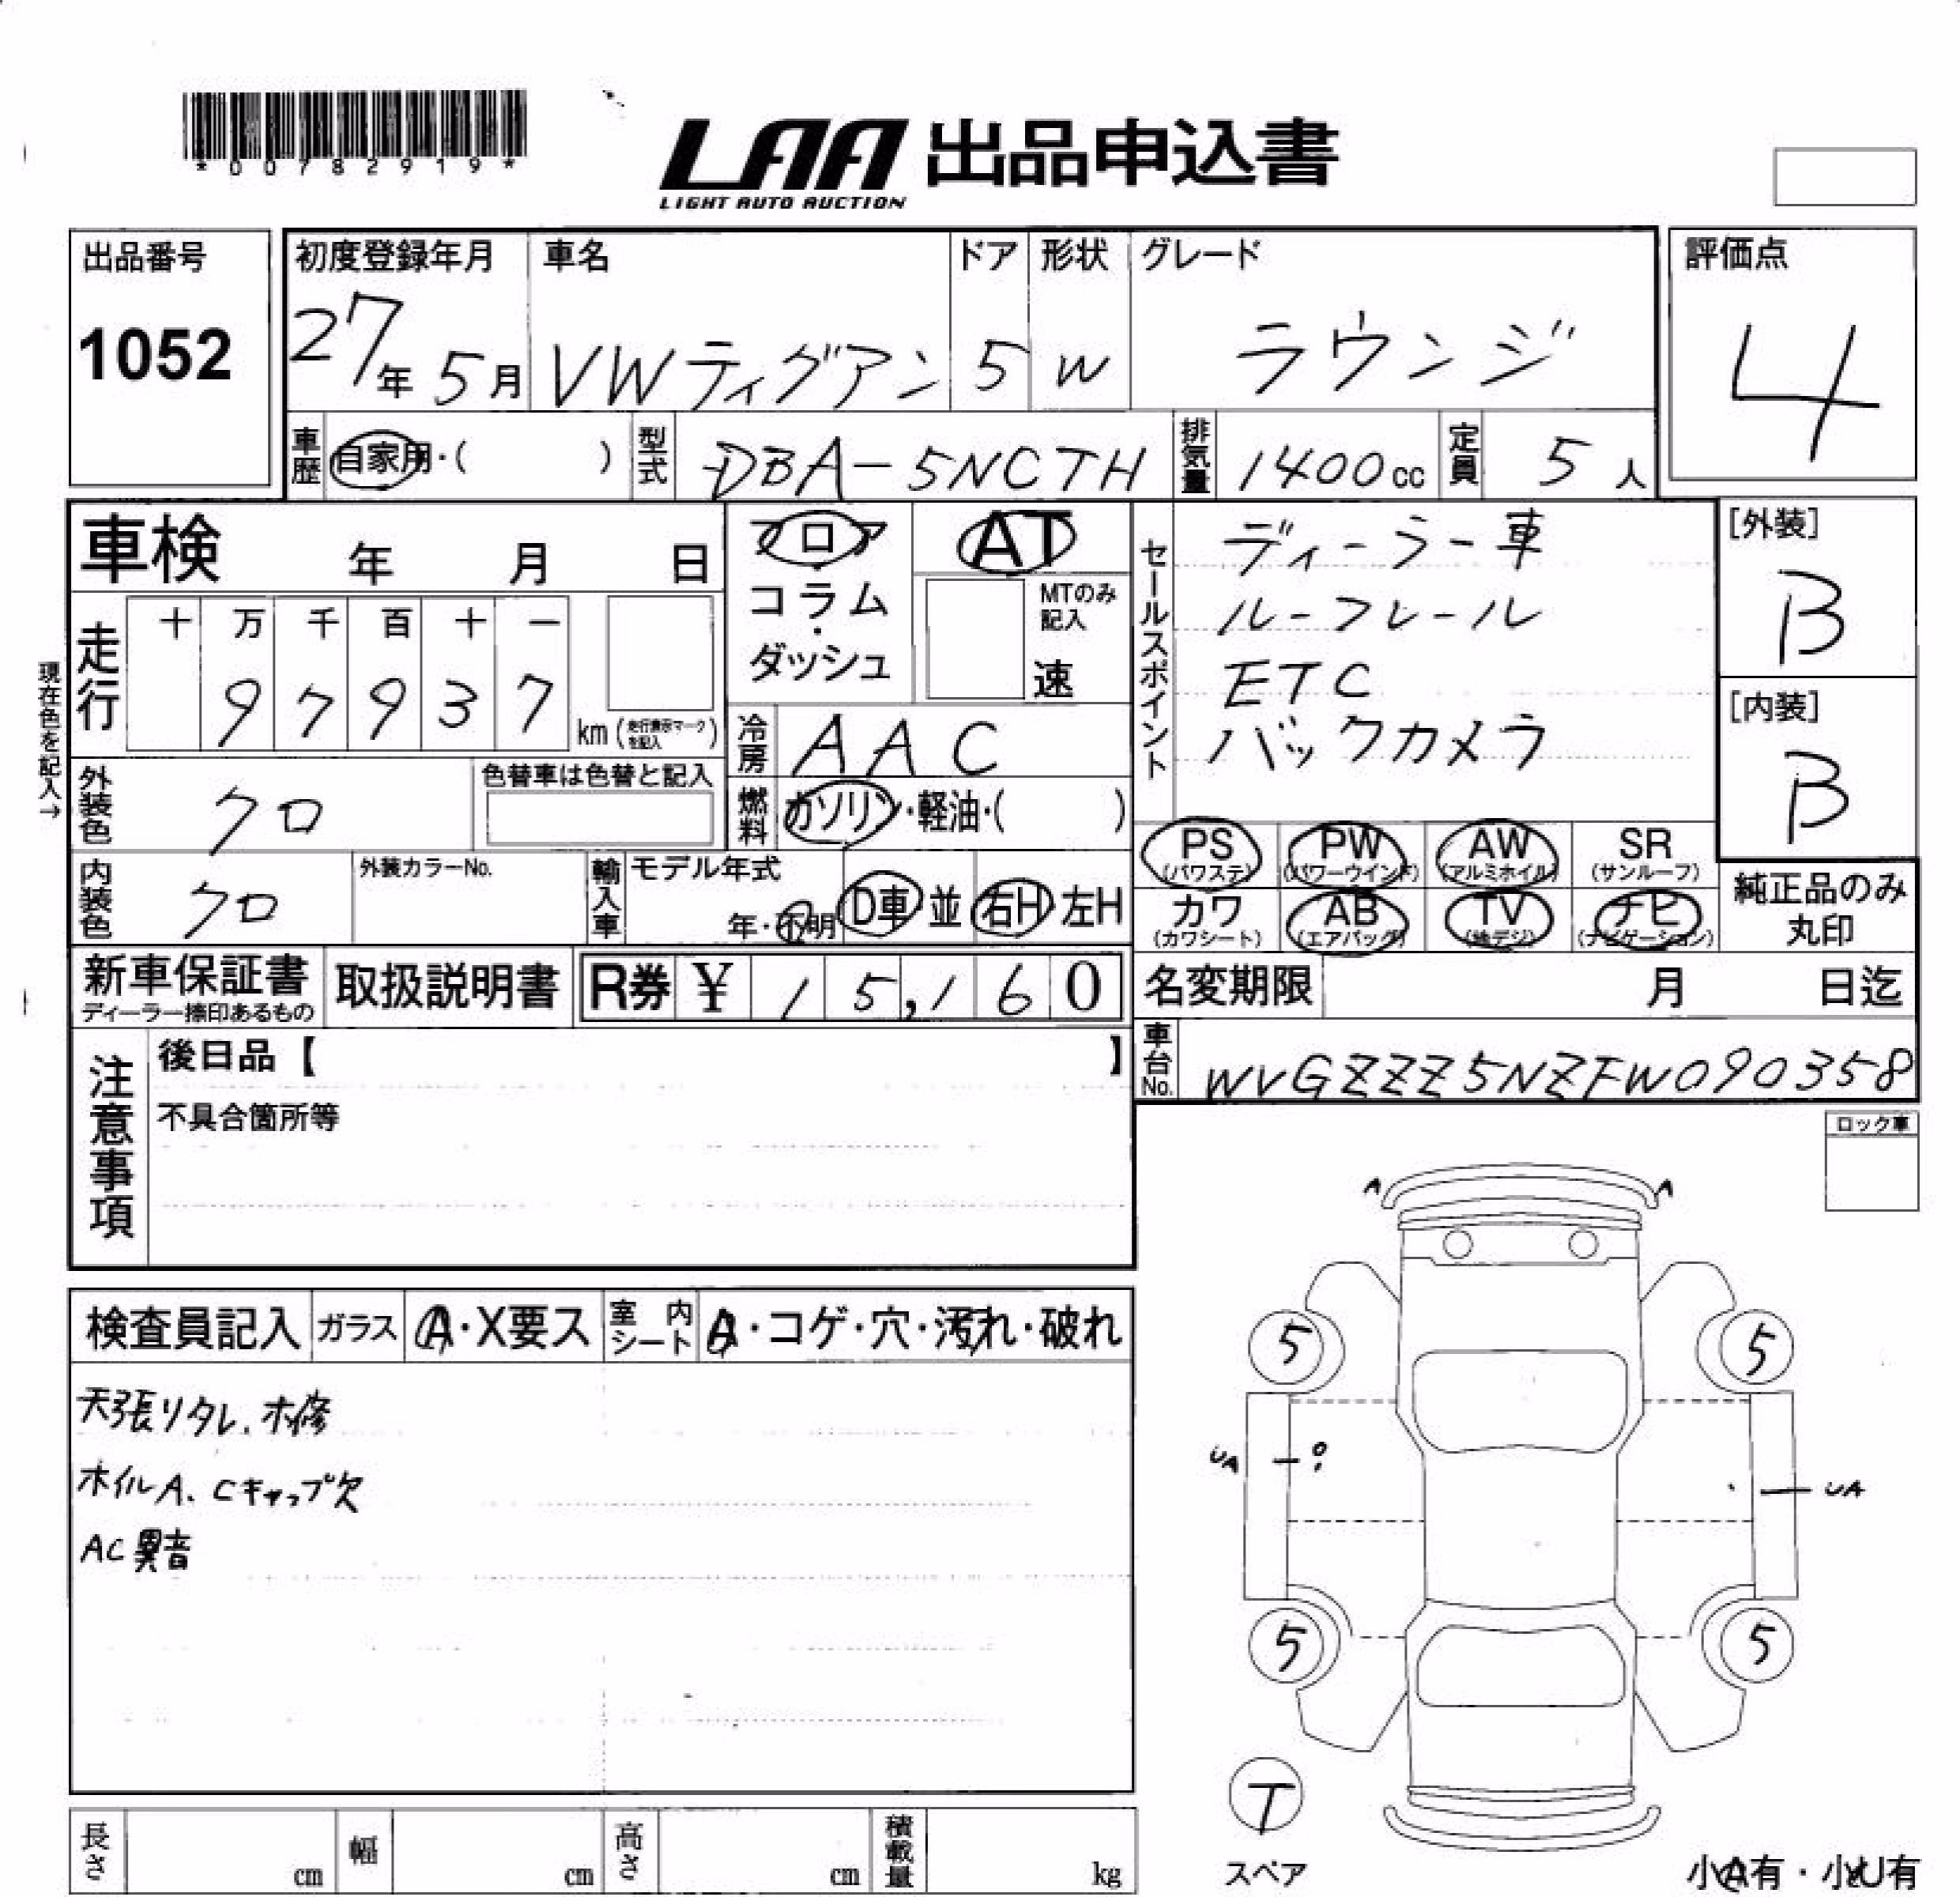 *00782919*
LAA 出品申込書
LIGHT AUTO AUCTION
出品番号
1052
初度登録年月
27年5月
車名
VWティグアン
ドア
5
形状
W
グレード
ラウンジ
評価点
4
車歴 自家用・( )
型式 DBA-5NCTH
排気量 1400cc
定員 5人
車検 年 月 日
フロア
コラム
・
ダッシュ
AT
MTのみ
記入
速
セールスポイント
ディーラー車
ルーフレール
ETC
バックカメラ
[外装]
B
[内装]
B
現在色を記入→
走行
十 万 千 百 十 一
9 7 9 3 7
km(走行表示マークを記入)
冷房 AAC
外装色 クロ
色替車は色替と記入
燃料 ガソリン・軽油・( )
PS (パワステ)
PW (パワーウインド)
AW (アルミホイル)
SR (サンルーフ)
内装色 クロ
外装カラーNo.
輸入車
モデル年式
年・不明
D車 並 右H 左H
カワ (カワシート)
AB (エアバッグ)
TV (地デジ)
ナビ (ナビゲーション)
純正品のみ
丸印
新車保証書
ディーラー捺印あるもの
取扱説明書
R券 ¥ 15,160
名変期限 月 日迄
車台No. WVGZZZ5NZFW090358
注意事項
後日品【 】
不具合箇所等
ロック車
検査員記入 ガラス A・X要ス 室内シート A・コゲ・穴・汚れ・破れ
天張りタレ、ホ修
ホイルA、Cキャップ欠
AC異音
A A
5 5
UA UA
5 5
T
スペア
小A有・小U有
長さ cm 幅 cm 高さ cm 積載量 kg